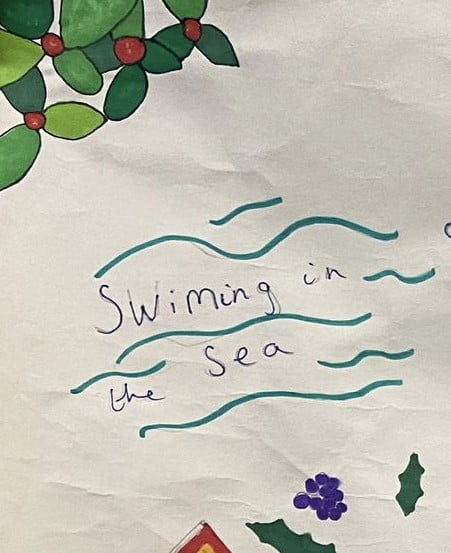 Swiming in
the sea